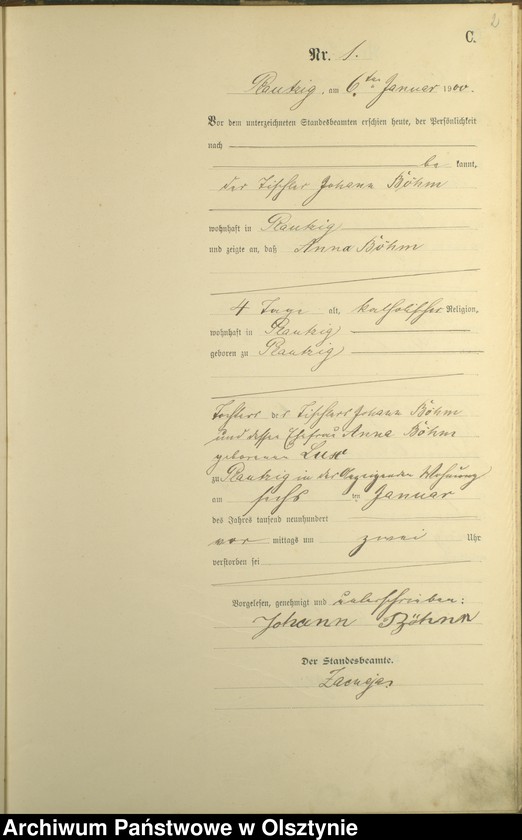 2
C.
Nr. 1.
Rentzig, am 6. ten Januar 1900.
Vor dem unterzeichneten Standesbeamten erschien heute, der Persönlichkeit
nach
be kannt,
der Tischler Johann Böhm
wohnhaft in
und zeigte an, daß Anna Böhm
4 Tage alt, katholischer Religion,
wohnhaft in
geboren zu
Tochter des Tischlers Johann Böhm
und dessen Ehefrau Anna Böhm
geborenen Lux
zu in der Wohnung
am sechs ten Januar
des Jahres tausend neunhundert
vor mittags um zwei Uhr
verstorben sei
Vorgelesen, genehmigt und unterschrieben:
Johann Böhm
Der Standesbeamte.
Archiwum Państwowe w Olsztynie